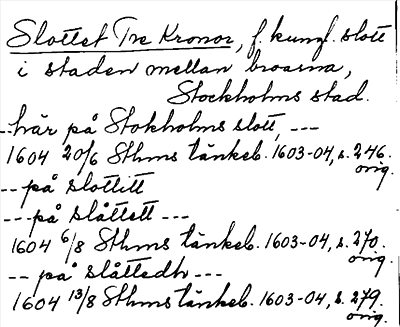 Slottet Tre Kronor, f. kungl. slott
i staden mellan broarna,
Stockholms stad.
--här på Stokholms slott, ---
1604 20/6 Sthms tänkeb. 1603-04, s. 246.
orig.
-- på slottitt
--- på slåttett ---
1604 6/8 Sthms tänkeb. 1603-04, s. 270.
orig.
-- på slåttedh ---
1604 13/8 Sthms tänkeb. 1603-04, s. 279.
orig.